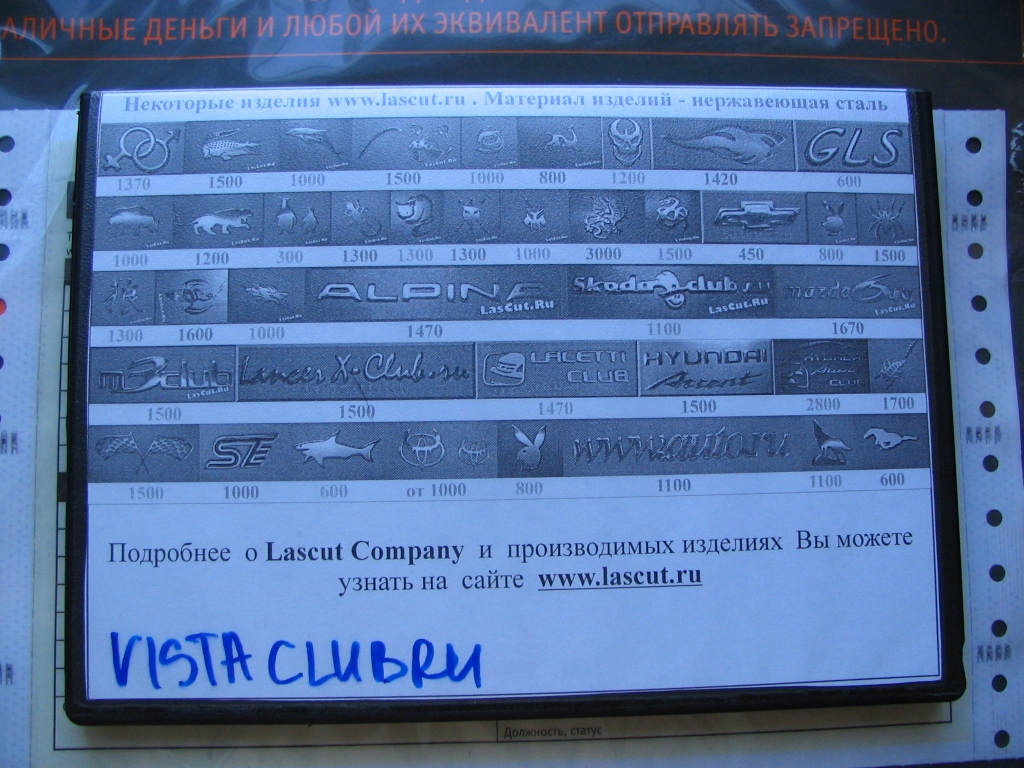 АЛИЧНЫЕ ДЕНЬГИ И ЛЮБОЙ ИХ ЭКВИВАЛЕНТ ОТПРАВЛЯТЬ ЗАПРЕЩЕНО.
Некоторые изделия www.lascut.ru . Материал изделий - нержавеющая сталь
GLS
1370 1500 1000 1500 1000 800 1200 1420 600
1000 1200 300 1300 1300 1300 1000 3000 1500 450 800 1500
ALPINA LasCut.Ru Skoda club.ru LasCut.Ru LasCut.Ru
1300 1600 1000 1470 1100 1670
m3club LasCut.Ru Lancer X-Club.ru LACETTI CLUB HYUNDAI Accent
1500 1500 1470 1500 2800 1700
SE www.auto.ru
1500 1000 600 от 1000 800 1100 1100 600
Подробнее о Lascut Company и производимых изделиях Вы можете
узнать на сайте www.lascut.ru
VISTA CLUBRU
Должность, статус